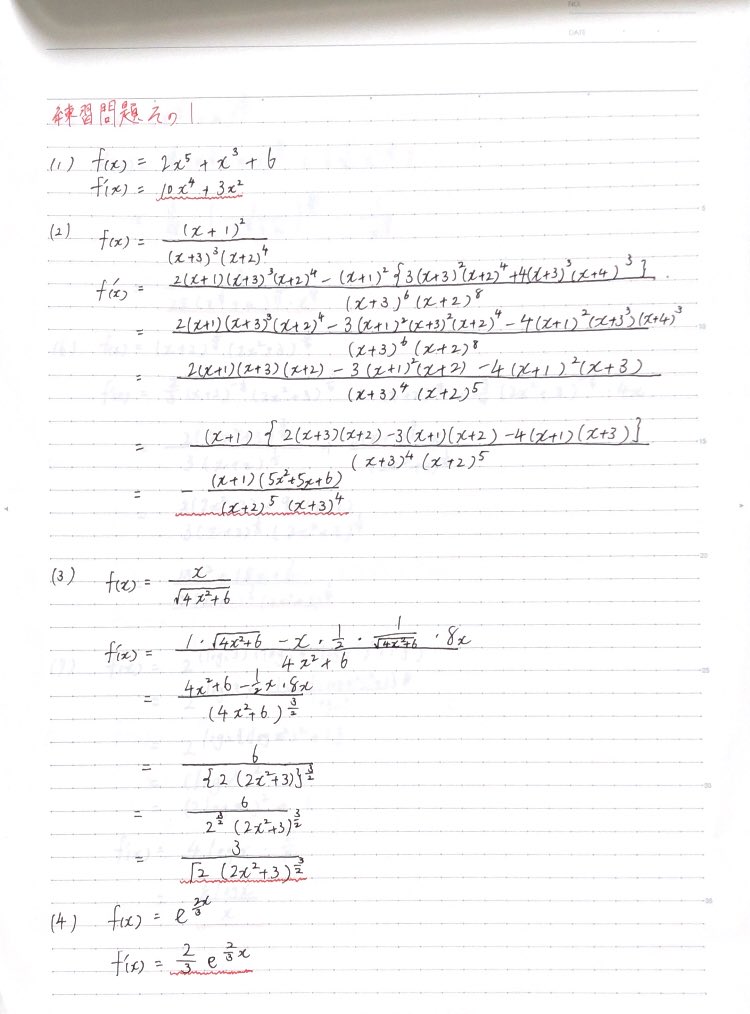 NO.
DATE
練習問題その1
(1) f(x) = 2x⁵ + x³ + 6
f'(x) = 10x⁴ + 3x²
(2) f(x) = (x+1)² / (x+3)³(x+2)⁴
f'(x) = 2(x+1)(x+3)³(x+2)⁴ − (x+1)²{3(x+3)²(x+2)⁴+4(x+3)³(x+4)³} / (x+3)⁶(x+2)⁸
= 2(x+1)(x+3)³(x+2)⁴ − 3(x+1)²(x+3)²(x+2)⁴ − 4(x+1)²(x+3³)(x+4)³ / (x+3)⁶(x+2)⁸
= 2(x+1)(x+3)(x+2) − 3(x+1)²(x+2) − 4(x+1)²(x+3) / (x+3)⁴(x+2)⁵
= (x+1){2(x+3)(x+2)−3(x+1)(x+2)−4(x+1)(x+3)} / (x+3)⁴(x+2)⁵
= − (x+1)(5x²+5x+6) / (x+2)⁵(x+3)⁴
(3) f(x) = x / √(4x²+6)
f'(x) = 1・√(4x²+6) − x・1/2・1/√(4x²+6)・8x / 4x²+6
= 4x²+6−1/2x・8x / (4x²+6)^(3/2)
= 6 / {2(2x²+3)}^(3/2)
= 6 / 2^(3/2)(2x²+3)^(3/2)
= 3 / √2(2x²+3)^(3/2)
(4) f(x) = e^(2x/3)
f'(x) = 2/3 e^(2/3 x)